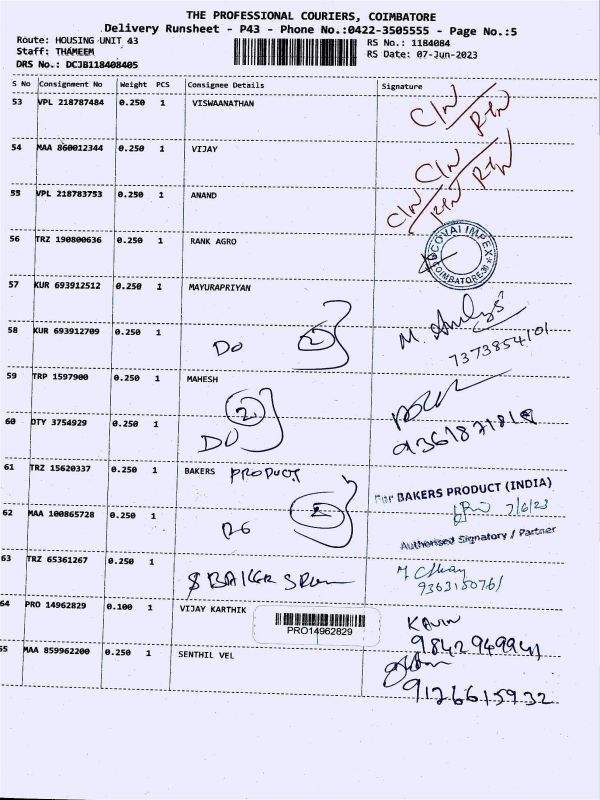 THE PROFESSIONAL COURIERS, COIMBATORE
Delivery Runsheet - P43 - Phone No.:0422-3505555 - Page No.:5
Route: HOUSING UNIT 43
RS No.: 1184084
Staff: THAMEEM
RS Date: 07-Jun-2023
DRS No.: DCJB118408405
S No Consignment No Weight PCS Consignee Details Signature
53 VPL 218787484 0.250 1 VISWAANATHAN C/N RTN
54 MAA 860012344 0.250 1 VIJAY C/N RTN
55 VPL 218783753 0.250 1 ANAND C/N RTN
56 TRZ 190800636 0.250 1 RANK AGRO COVAI IMPEX COIMBATORE-30
57 KUR 693912512 0.250 1 MAYURAPRIYAN
58 KUR 693912709 0.250 1 Do 2 M.
7373854101
59 TRP 1597900 0.250 1 MAHESH
60 DTY 3754929 0.250 1 DO 2 9361871819
61 TRZ 15620337 0.250 1 BAKERS PRODUCT For BAKERS PRODUCT (INDIA)
7/6/23
62 MAA 100865728 0.250 1 2 Authorised Signatory / Partner
63 TRZ 65361267 0.250 1
9363150761
64 PRO 14962829 0.100 1 VIJAY KARTHIK PRO14962829 KAVIN
9842949941
65 MAA 859962200 0.250 1 SENTHIL VEL
9126615932